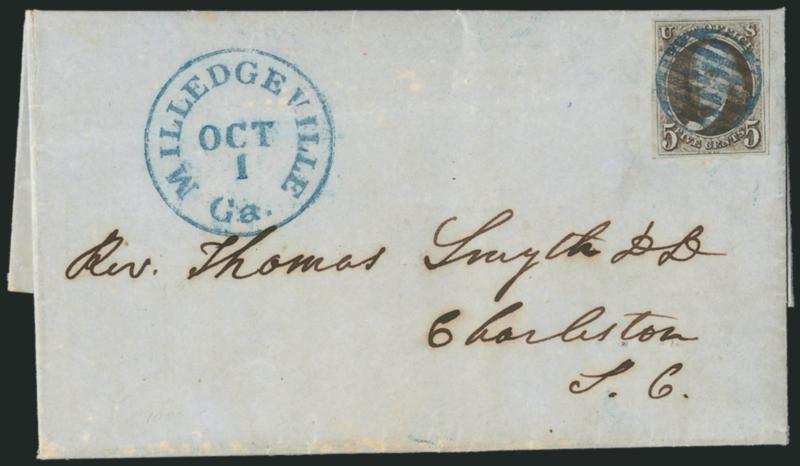 U S
POST OFFICE
5 FIVE CENTS 5
MILLEDGEVILLE
OCT
1
Ga.
Rev. Thomas Smyth D D
Charleston
S. C.